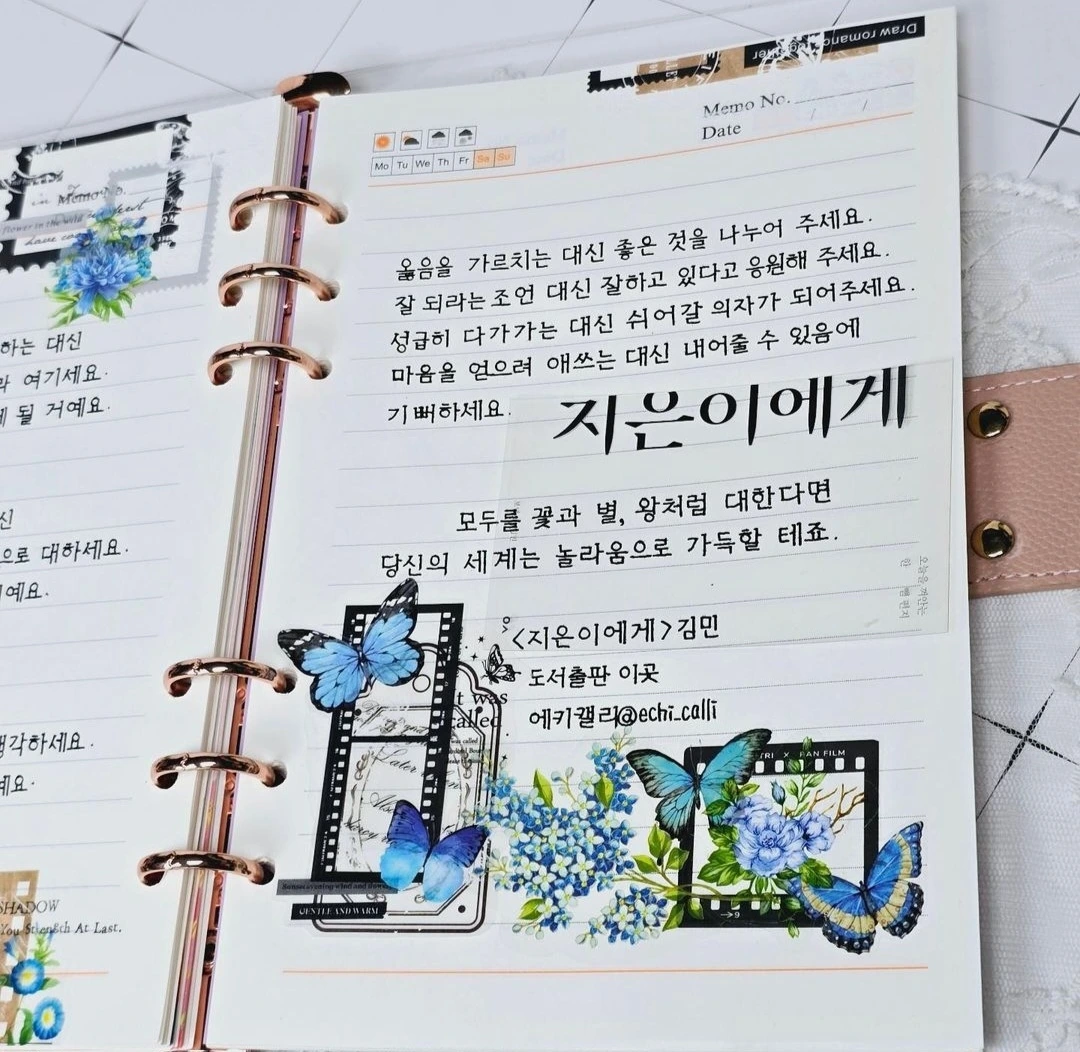 Draw romance together
Memo No.
Date
Mo Tu We Th Fr Sa Su
옳음을 가르치는 대신 좋은 것을 나누어 주세요.
잘 되라는 조언 대신 잘하고 있다고 응원해 주세요.
성급히 다가가는 대신 쉬어갈 의자가 되어주세요.
마음을 얻으려 애쓰는 대신 내어줄 수 있음에
기뻐하세요.
지은이에게
모두를 꽃과 별, 왕처럼 대한다면
당신의 세계는 놀라움으로 가득할 테죠.
오늘을 껴안는
한 뼘 편지
<지은이에게> 김민
도서출판 이곳
에키캘리@echi_calli
it was
called
Later
GENTLE AND WARM
TRI X PAN FILM
→9
in Memo
flower in the wild
하는 대신
여기세요.
될 거예요.
신
으로 대하세요.
예요.
생각하세요.
예요.
SHADOW
You Strength At Last.